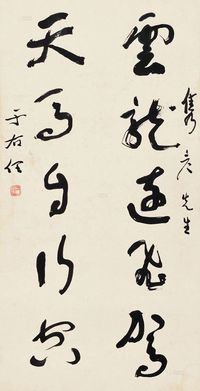 雋彥先生
雲龍遠飛駕
天馬自行空
于右任